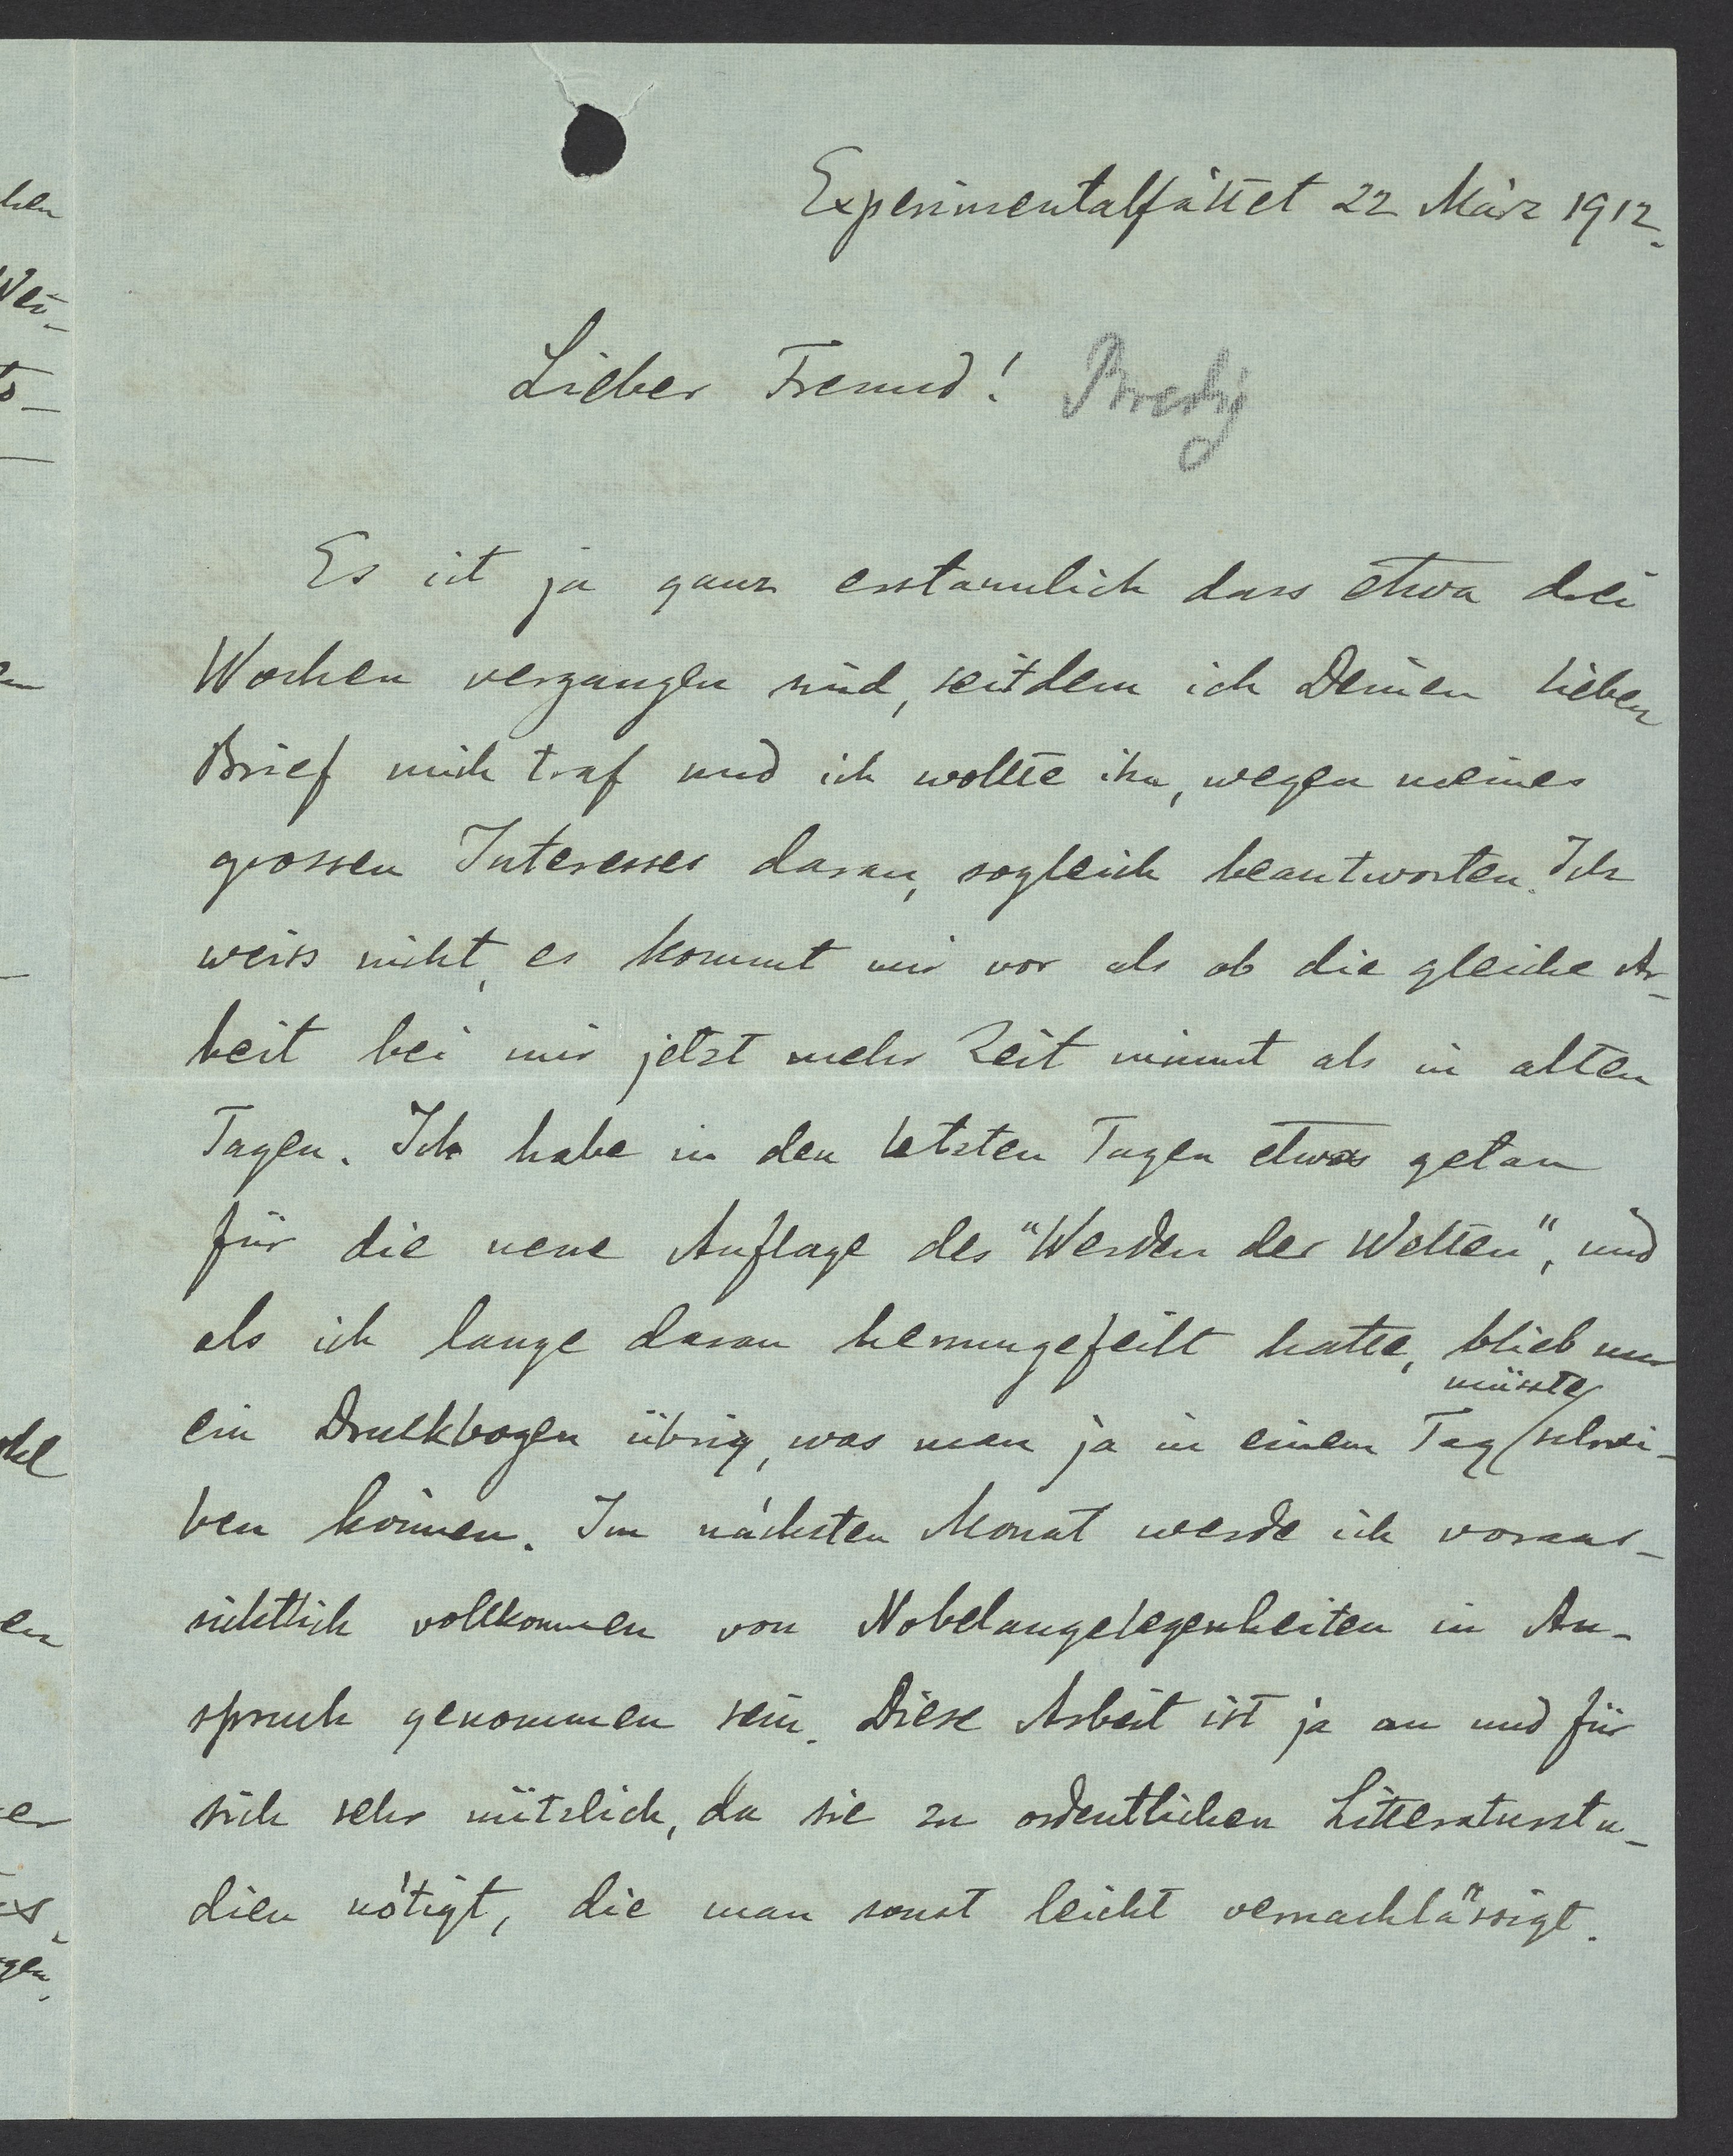 Experimentalfältet 22 März 1912.
Lieber Freund! Bredig
Es ist ja ganz erstaunlich dass etwa drei
Wochen vergangen sind, seitdem ich Deinen lieben
Brief mich traf und ich wollte ihn, wegen meines
grossen Interesses daran, sogleich beantworten. Ich
weiss nicht, es kommt mir vor als ob die gleiche Ar-
beit bei mir jetzt mehr Zeit nimmt als in alten
Tagen. Ich habe in den letzten Tagen etwas getan
für die neue Auflage des "Werden der Welten", und
als ich lange daran herumgefeilt hatte, blieb nur
müsste
ein Druckbogen übrig, was man ja in einem Tag schrei-
ben können. Im nächsten Monat werde ich voraus-
sichtlich vollkommen von Nobelangelegenheiten in An-
spruch genommen sein. Diese Arbeit ist ja an und für
sich sehr nützlich, da sie zu ordentlichen Litteraturstu-
dien nötigt, die man sonst leicht vernachlässigt.